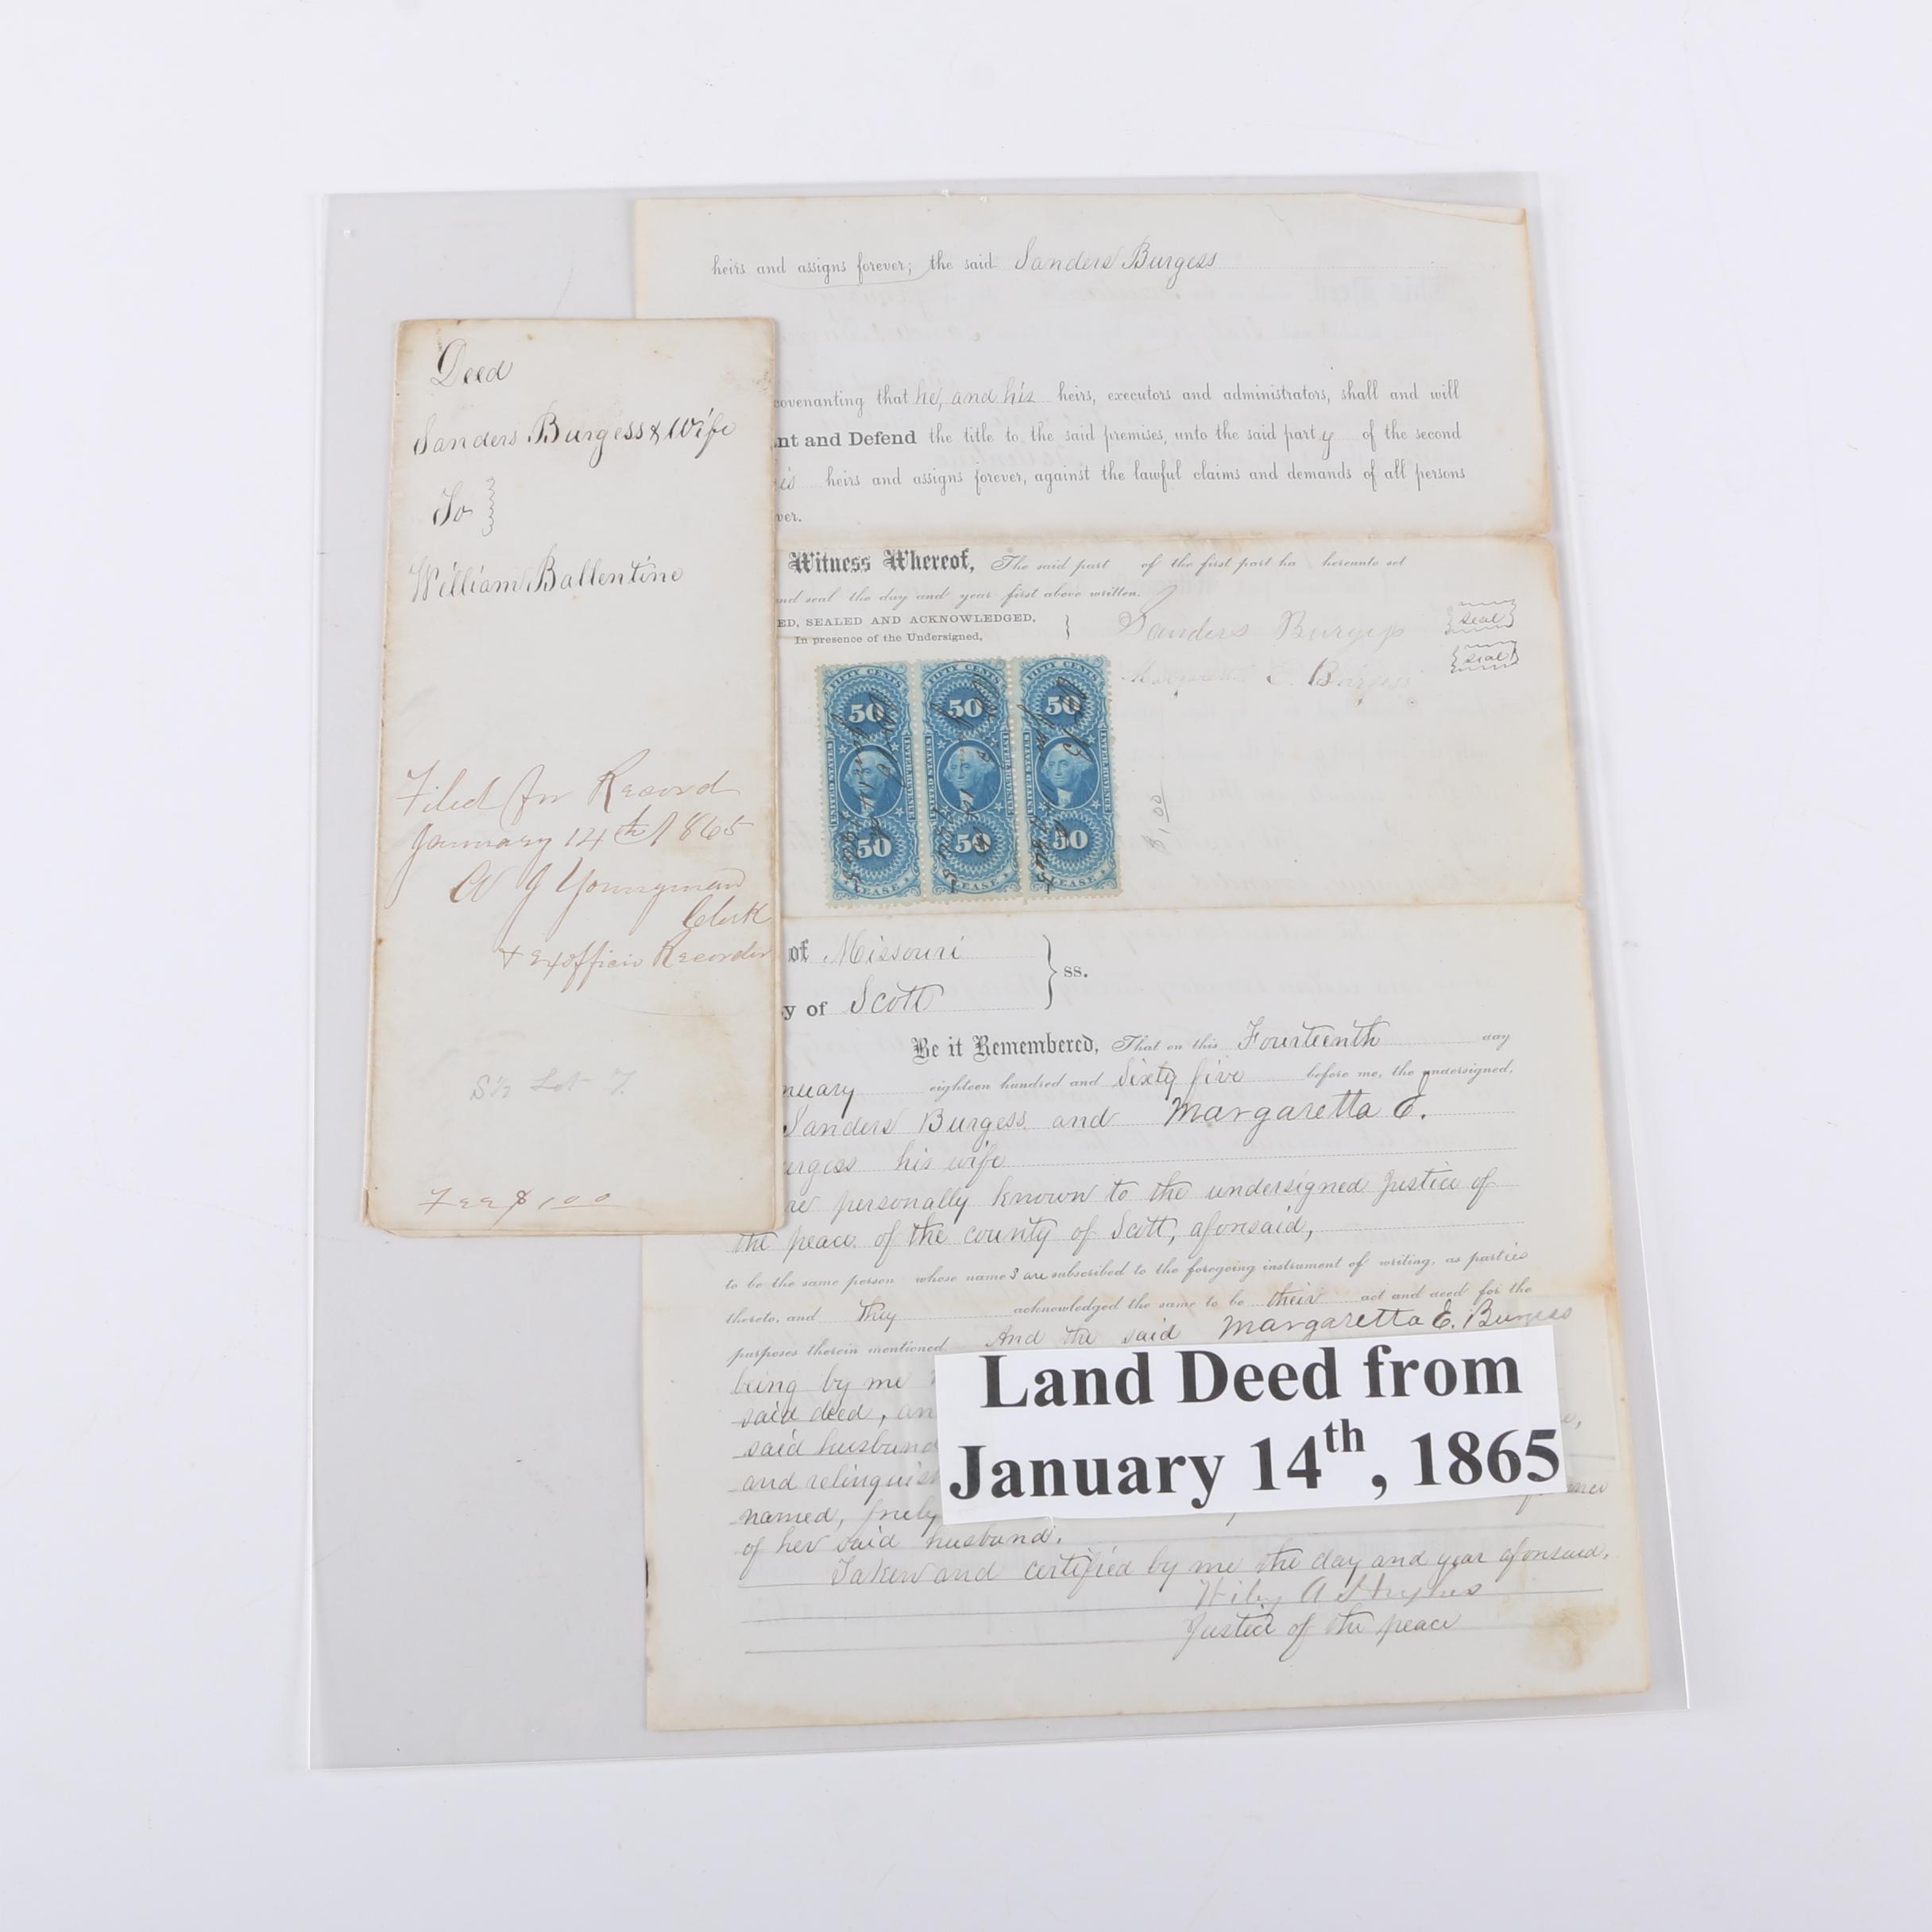 Deed
Sanders Burgess & Wife
To
William Ballentine
Filed for Record
January 14th 1865
W J Youngman
Clerk
& Exofficio Recorder
S½ Lot 7.
Fee $1 00
heirs and assigns forever; the said Sanders Burgess
covenanting that he, and his heirs, executors and administrators, shall and will
nt and Defend the title to the said premises, unto the said party of the second
is heirs and assigns forever, against the lawful claims and demands of all persons
ver.
Witness Whereof, The said part of the first part ha hereunto set
nd seal the day and year first above written.
ED, SEALED AND ACKNOWLEDGED,
In presence of the Undersigned,
Sanders Burgess
Seal
E. Burgess
Seal
FIFTY CENTS FIFTY CENTS FIFTY CENTS
50 50 50
UNITED STATES INTER. REVENUE UNITED STATES INTER. REVENUE UNITED STATES INTER. REVENUE
50 50 50
LEASE LEASE LEASE
$1,00
of Missouri
ss.
y of Scott
Be it Remembered, That on this Fourteenth day
nuary eighteen hundred and Sixty five before me, the undersigned,
Sanders Burgess and Margaretta E.
urgess his wife
re personally known to the undersigned Justice of
the peace of the county of Scott, aforesaid,
to be the same person whose names are subscribed to the foregoing instrument of writing, as parties
thereto, and They acknowledged the same to be their act and deed for the
purposes therein mentioned And the said Margaretta E. Burgess
being by me
said deed, an
said husband
and relinquish
named, freely
of her said husband.
Taken and certified by me the day and year aforesaid.
A Hughes
Justice of the peace
Land Deed from
January 14th, 1865